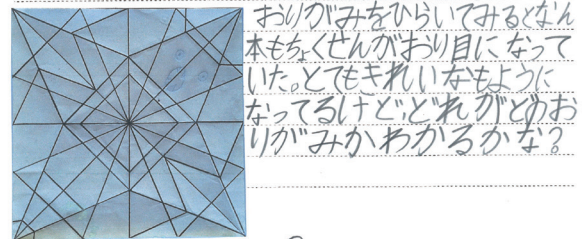 おりがみをひらいてみるとなん
本もちょくせんがおり目になって
いた。とてもきれいなもように
なってるけど、どれがどのお
りがみかわかるかな？